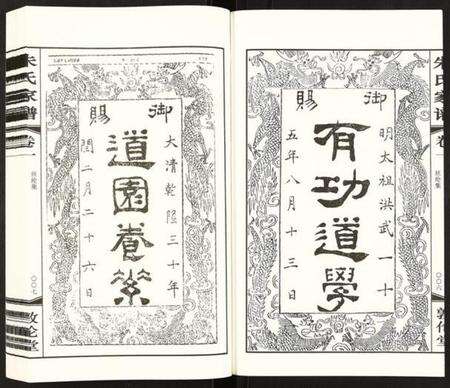 朱氏家谱
卷一
〇〇六
御賜
明太祖洪武一十
有功道學
五年八月十三日
御賜
大清乾隆三十年
道園
閏二月二十六日
朱氏家谱
卷一
〇〇七
敦伦堂